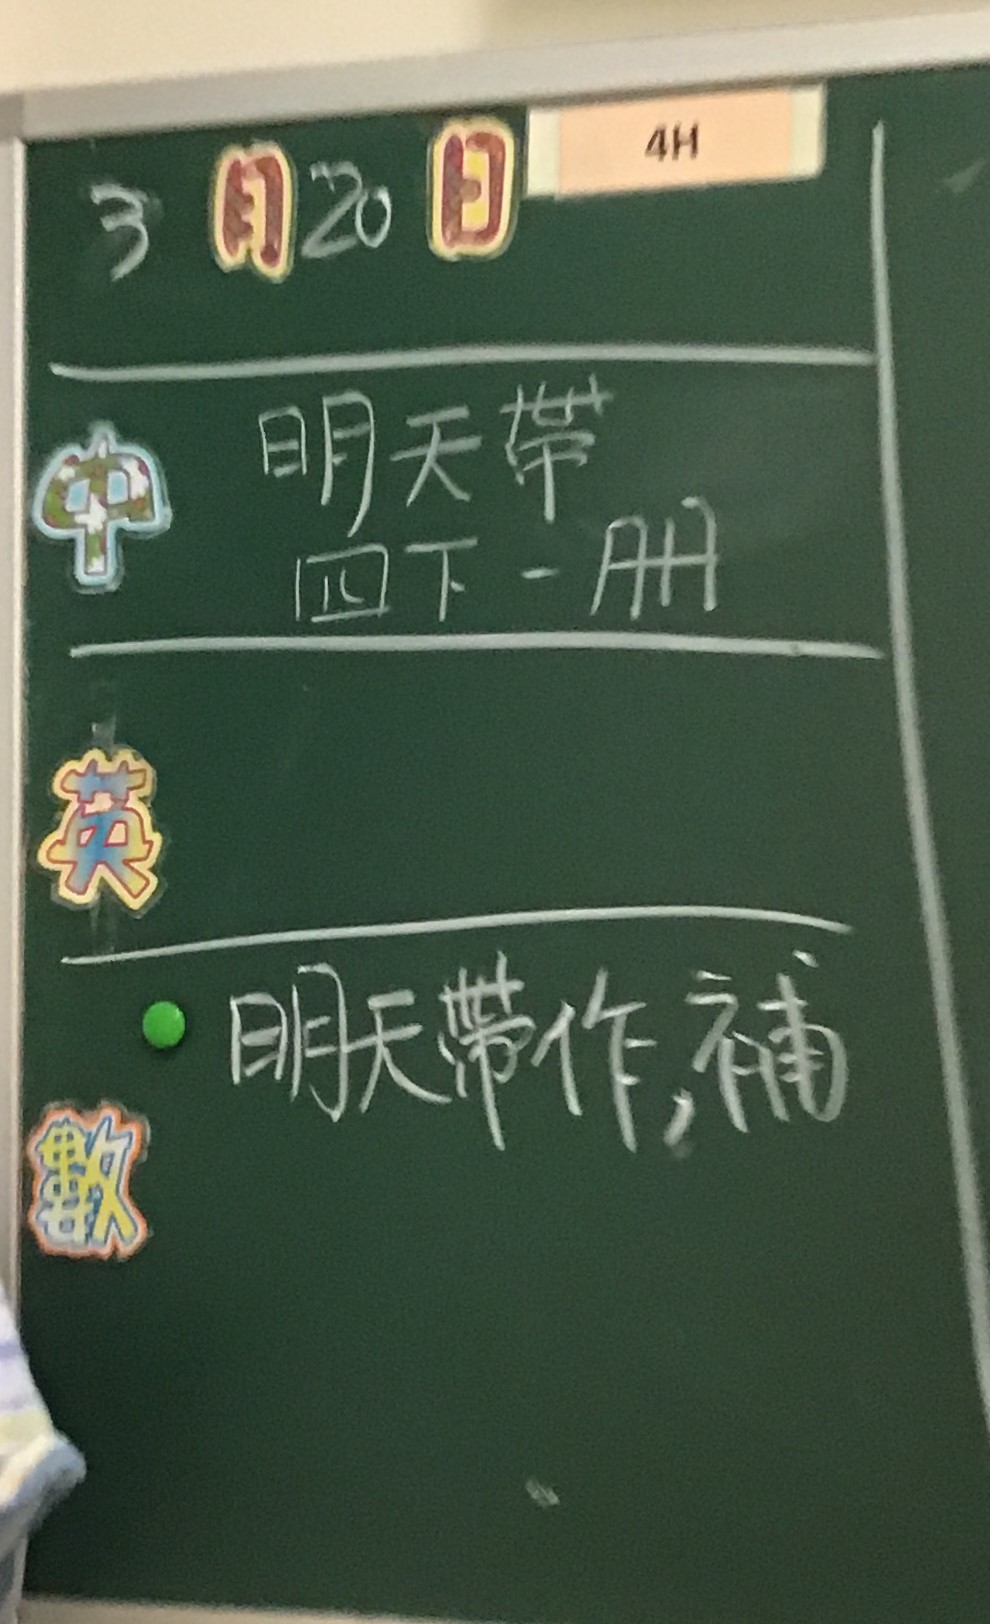 3月20日 4H
中 明天帶
四下一冊
英
明天帶作,補
數